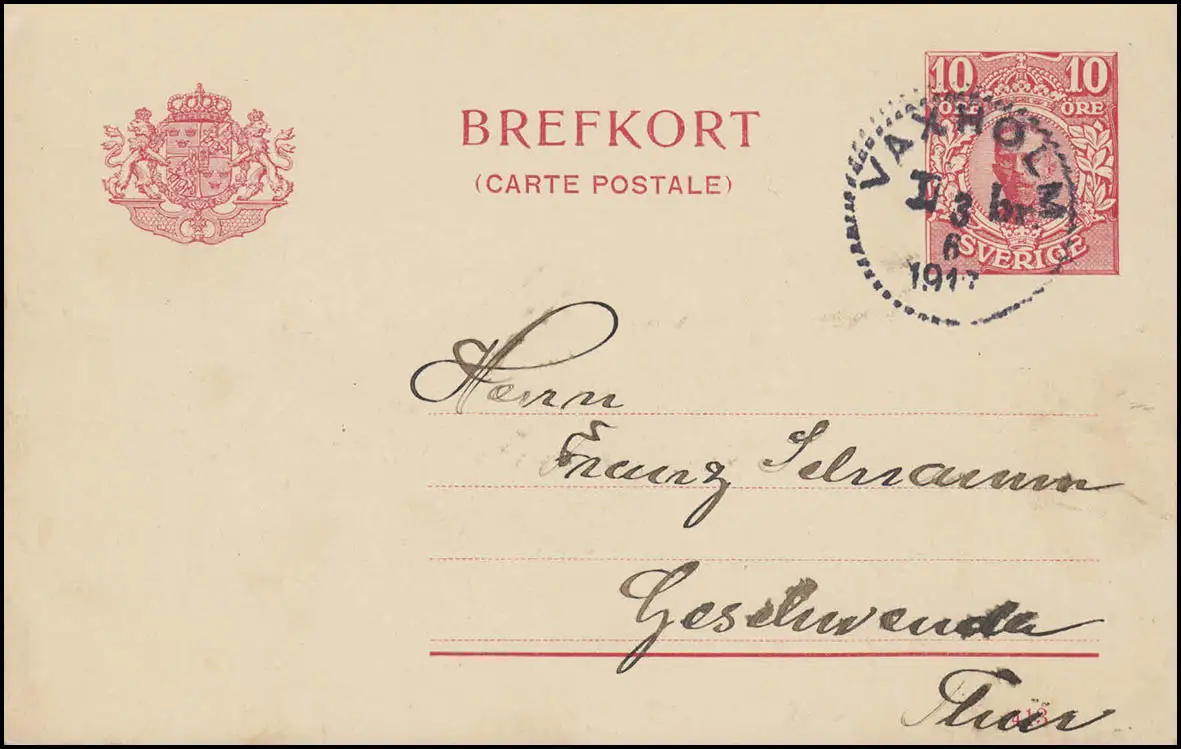 10 10
ÖRE ÖRE
BREFKORT
(CARTE POSTALE)
SVERIGE
VAXHOLM
3
6
1917
Herrn
Franz Schramm
Geschwenda
Thür